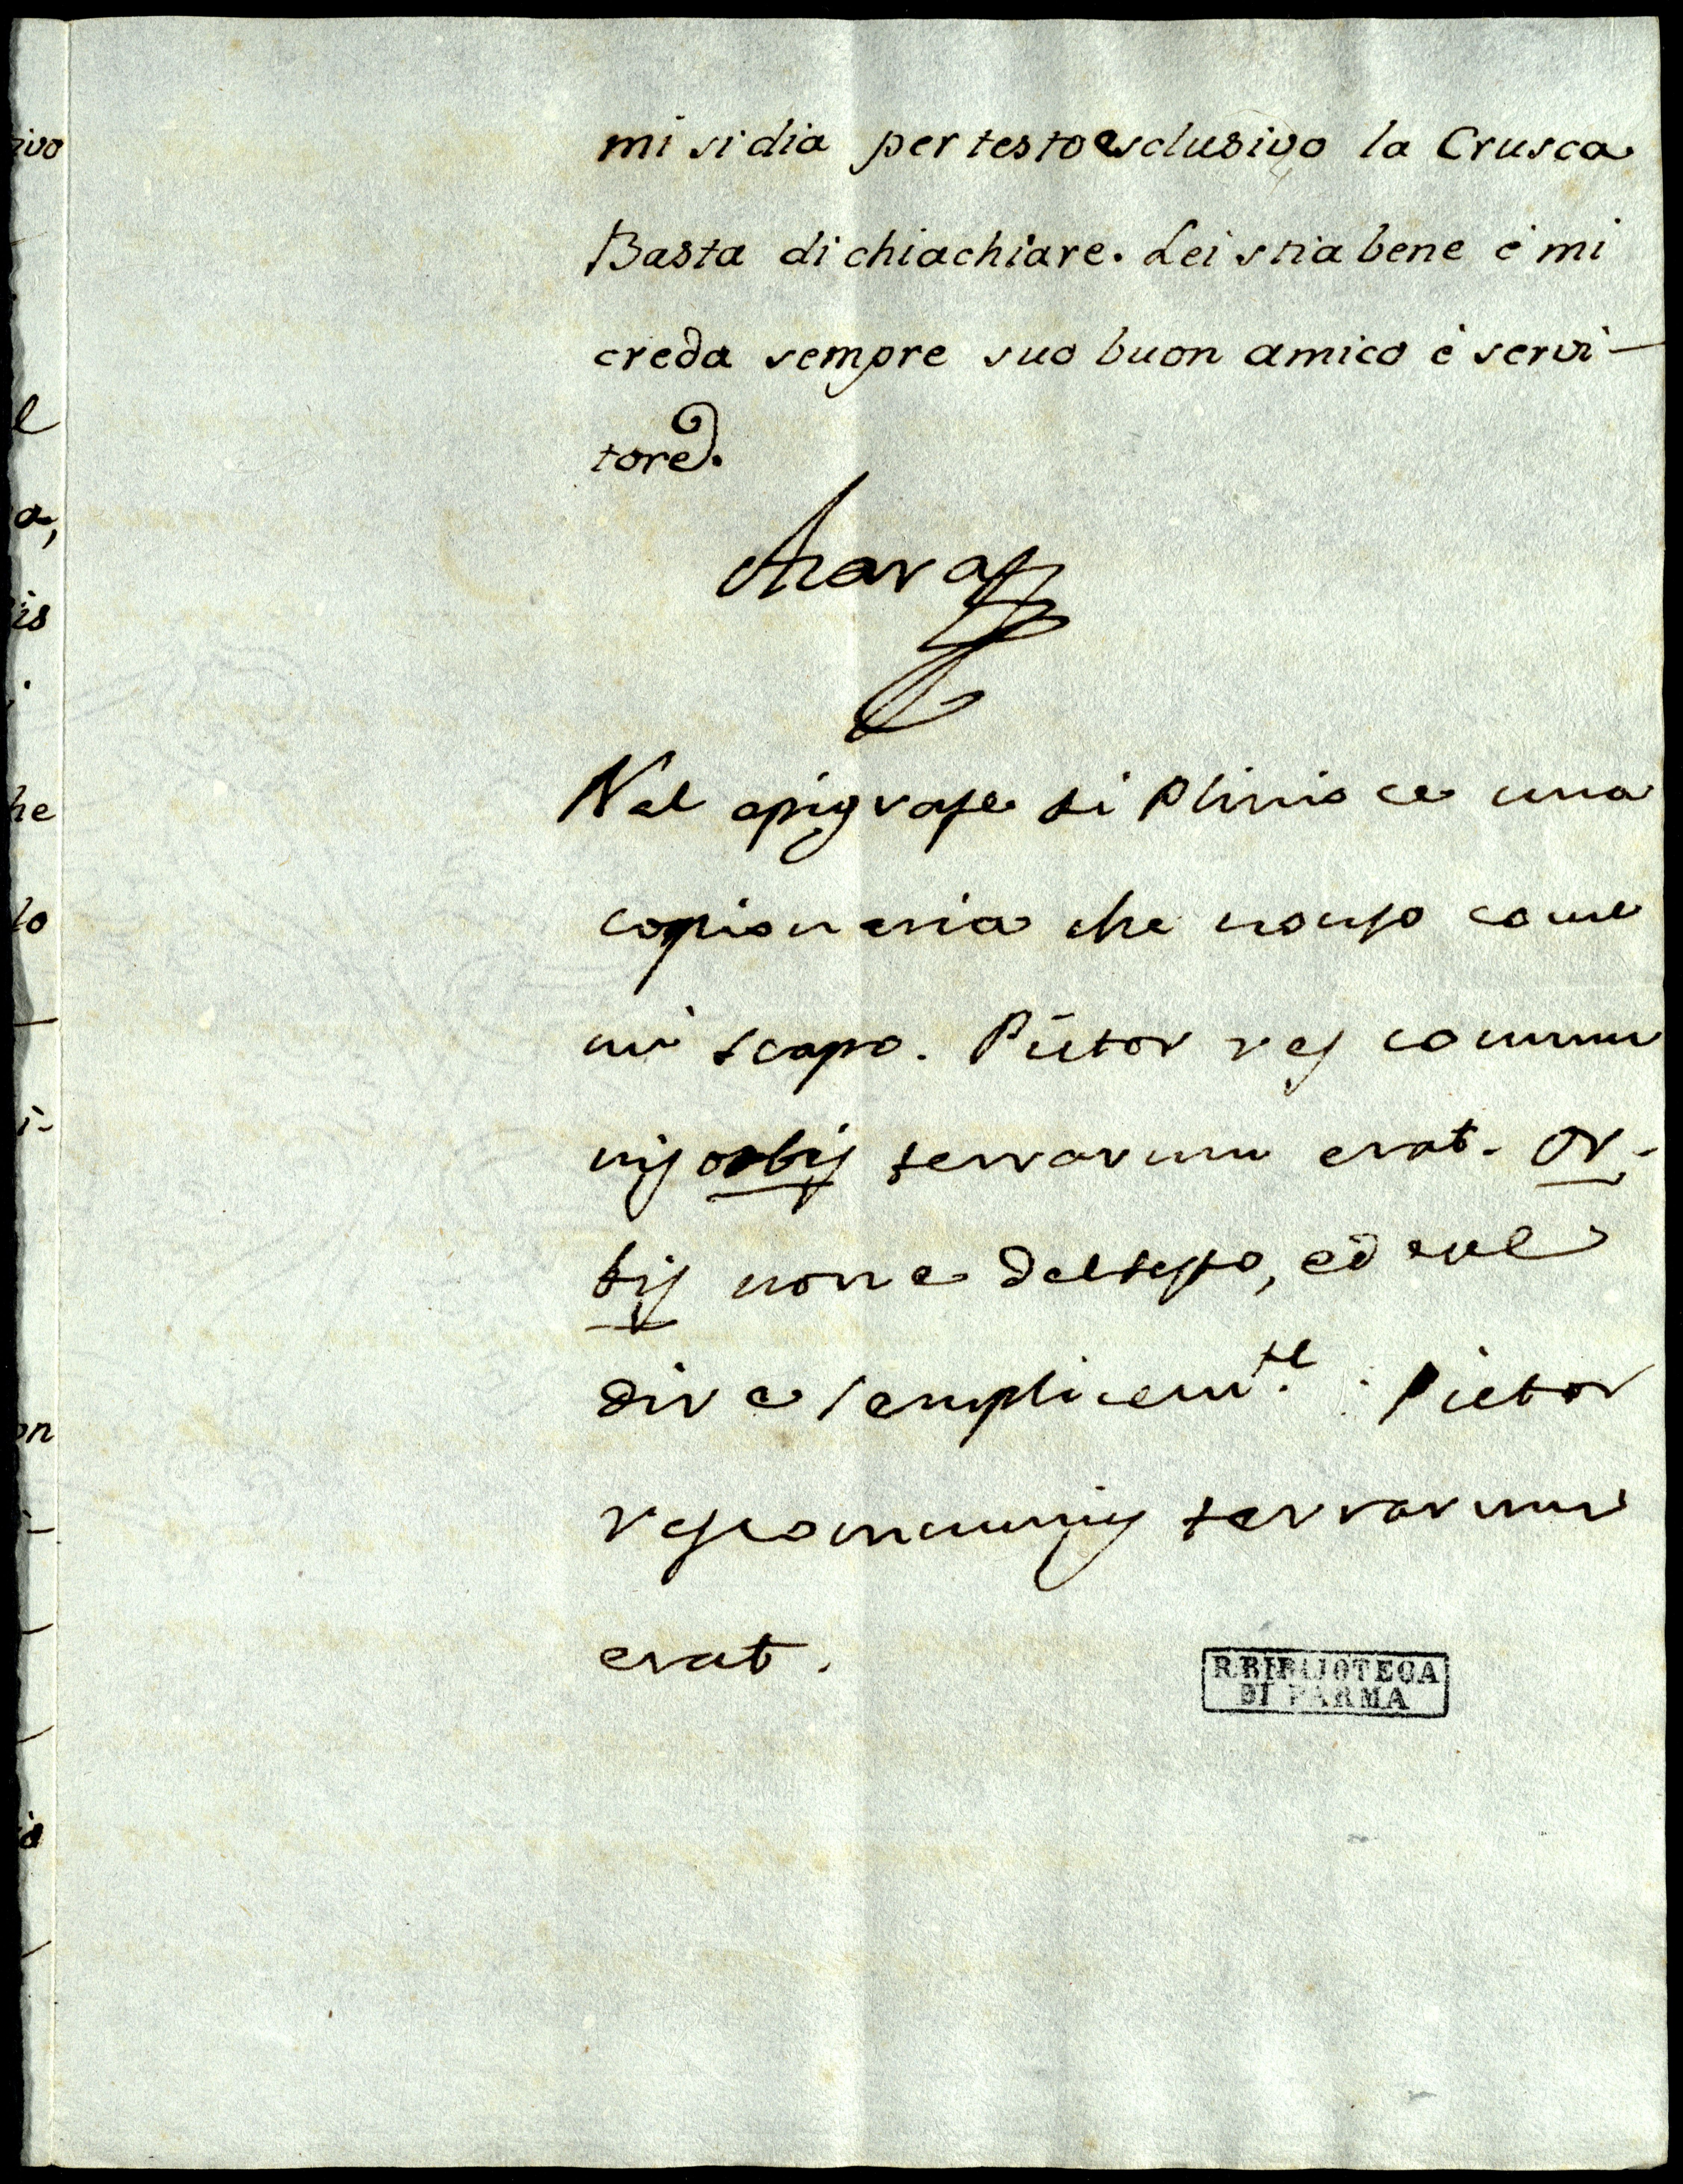 mi si dia per testo esclusivo la Crusca
Basta di chiachiare. Lei stia bene è mi
creda sempre suo buon amico è servi-
tore.
Azara
Nel epigrafe di Plinio ce una
che nonso come
mi scapo. Pictor res commu
nis orbis terrarum erat. Or-
bis non e deltesto, ed
dire semplicemte. : Pictor
rescommunis terrarum
erat.
R. BIBLIOTECA
DI PARMA
ivo
l
a,
is
he
lo
i-
on